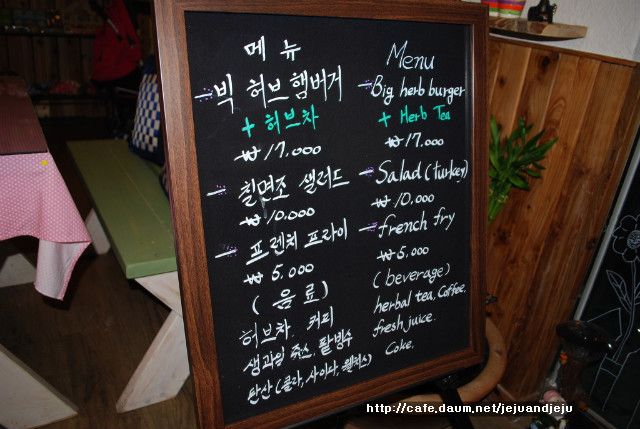 메 뉴
빅 허브햄버거
+ 허브차
₩17,000
칠면조 샐러드
₩10,000
프렌치 프라이
₩5,000
(음료)
허브차, 커피
생과일 쥬스, 팥빙수
탄산(콜라, 사이다, 웰치스)
Menu
Big herb burger
+ Herb Tea
₩17,000
Salad (turkey)
₩10,000
french fry
₩5,000
(beverage)
herbal tea, Coffee.
fresh juice.
Coke.
http://cafe.daum.net/jejuandjeju